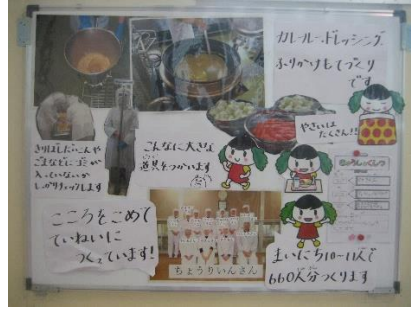 カレールー、ドレッシング
ふりかけもてづくり
です
やさいは
たくさん!!
きりぼしだいこんや
ごまなどにゴミが
入っていないか
しっかりチェックします
こんなに大きな
道具をつかいます
こころをこめて
ていねいに
つくっています!
ちょうりいんさん
まいにち10〜11人で
660人分つくります